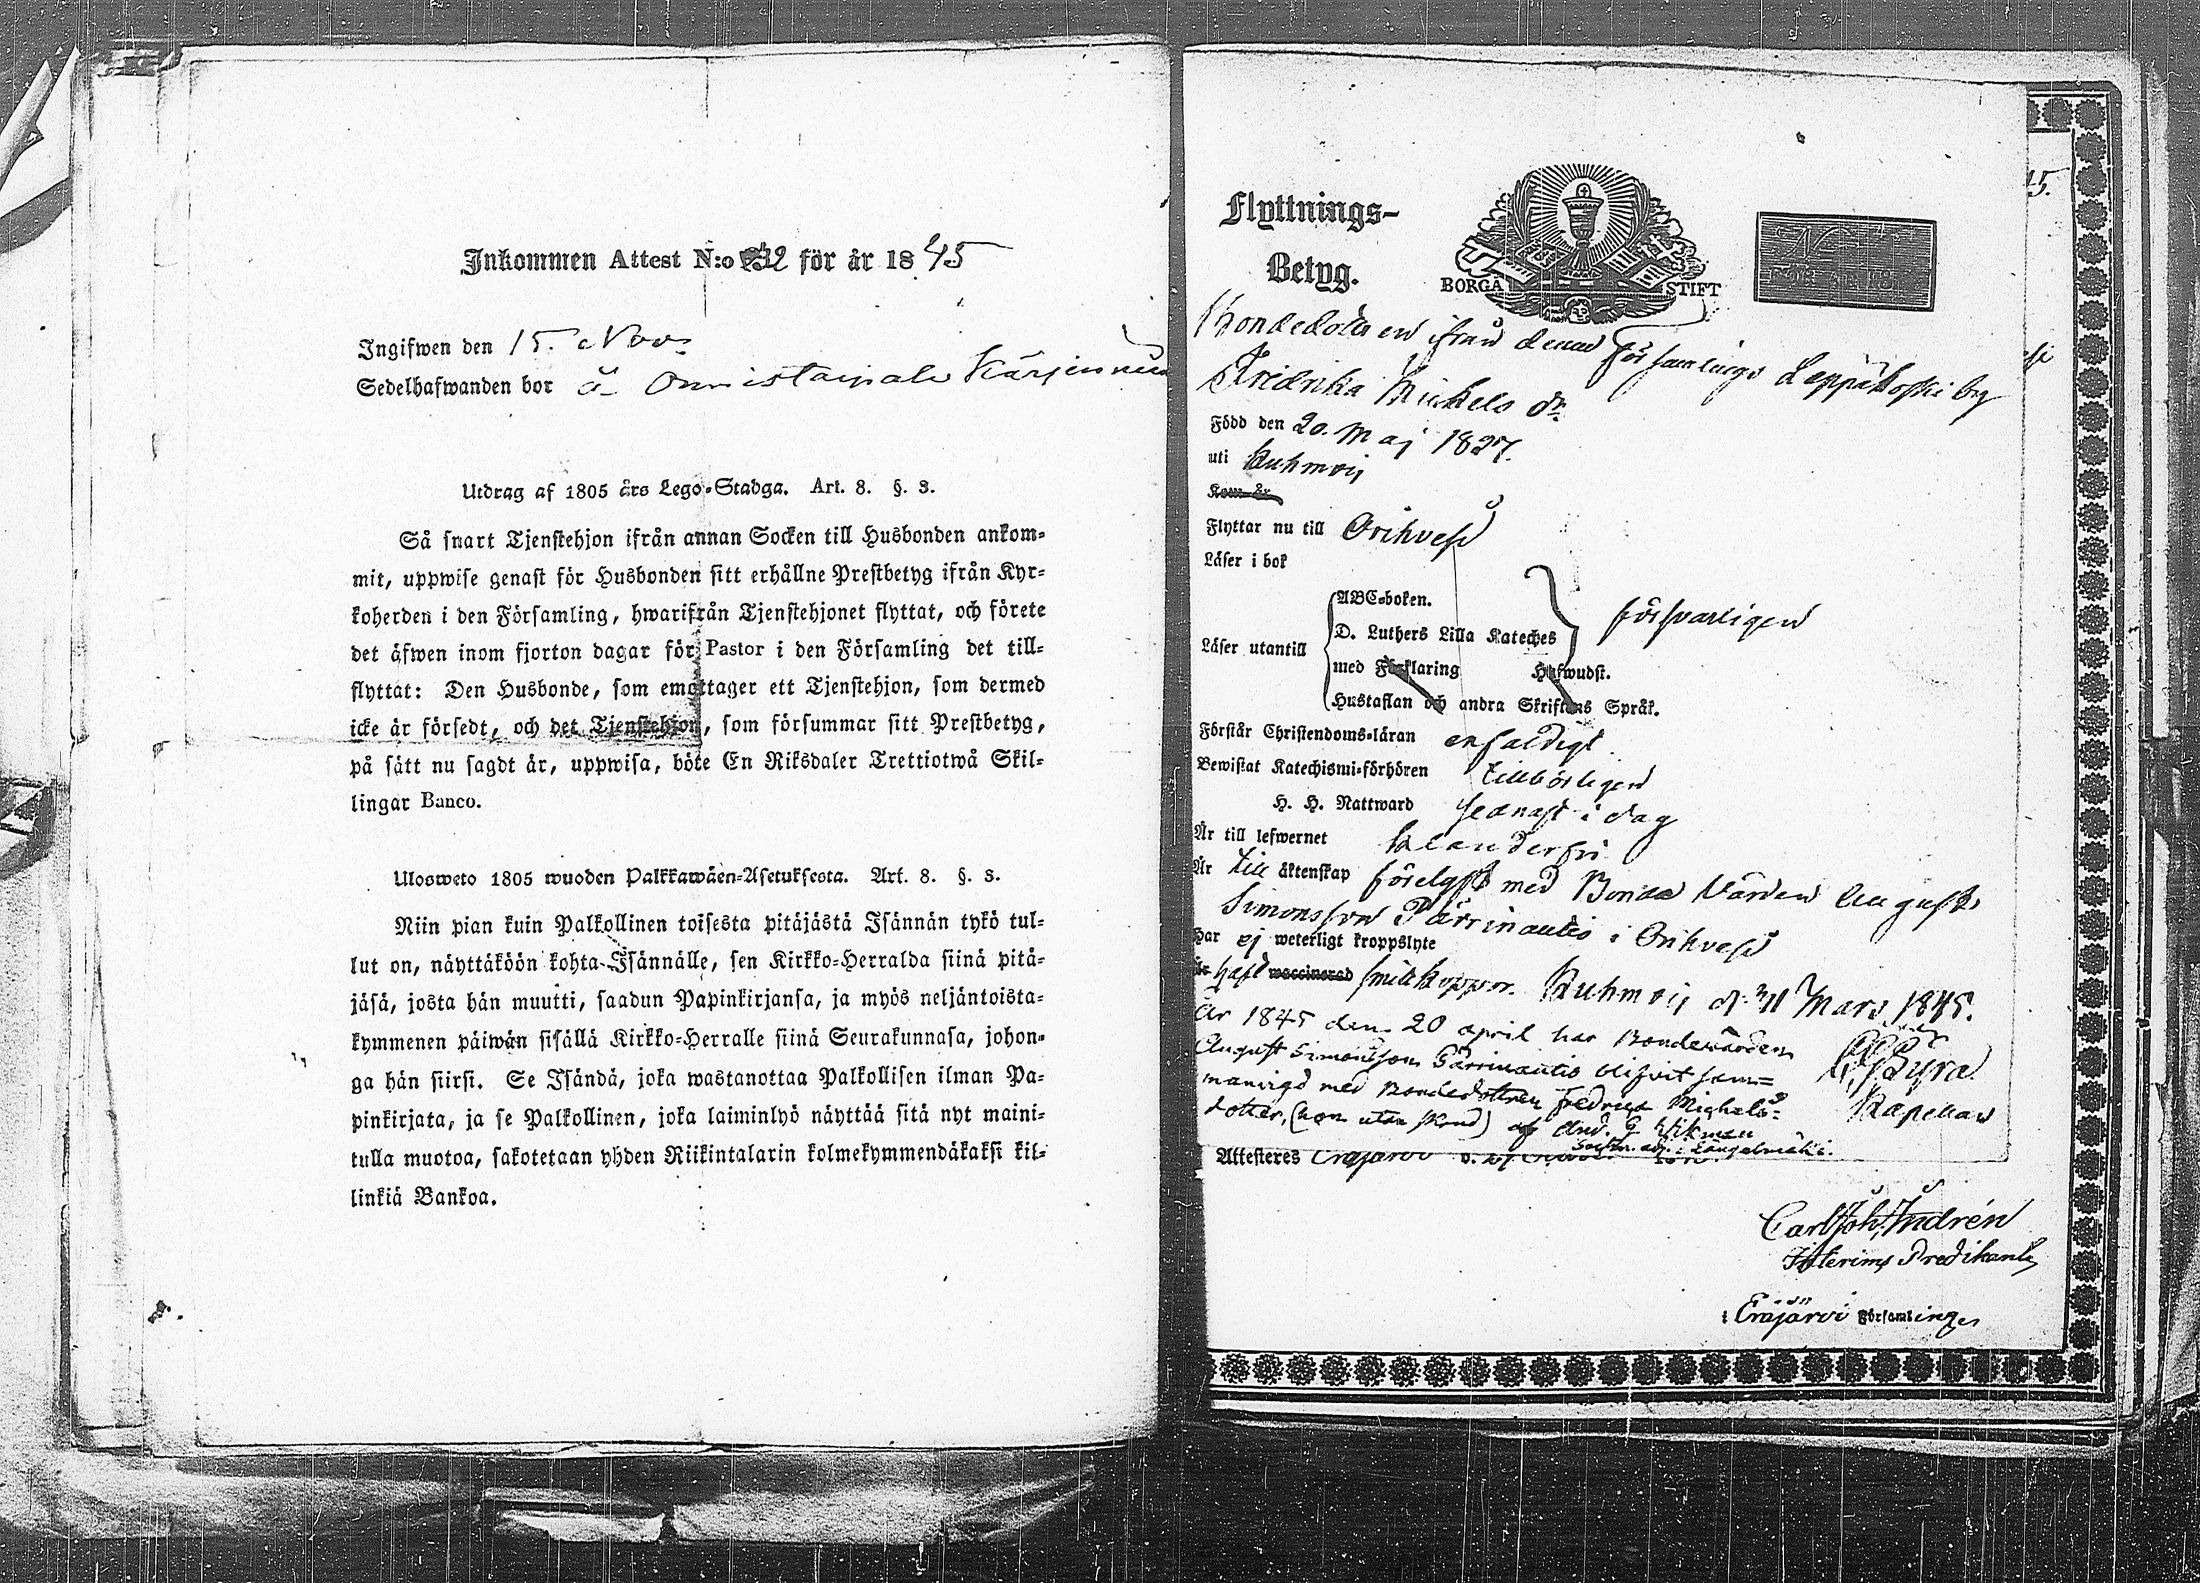 Inkommen Attest N:o 32 för år 1845
Ingifwen den 15. Nov:
Sedelhafwanden bor å Onnistaipale
Utdrag af 1805 års Lego-Stadga. Art. 8. §. 3.
Så snart Tjenstehjon ifrån annan Socken till Husbonden ankom-
mit, uppwise genast för Husbonden sitt erhållne Prestbetyg ifrån Kyr-
koherden i den Församling, hwarifrån Tjenstehjonet flyttat, och förete
det äfwen inom fjorton dagar för Pastor i den Församling det till-
flyttat: Den Husbonde, som emottager ett Tjenstehjon, som dermed
icke är försedt, och det Tjenstehjon, som försummar sitt Prestbetyg,
på sätt nu sagdt är, uppwisa, böte En Riksdaler Trettiotwå Skil-
lingar Banco.
Ulosweto 1805 wuoden Palkkawäen-Asetuksesta. Art. 8. §. 3.
Niin pian kuin Palkollinen toisesta pitäjästä Isännän tykö tul-
lut on, näyttäköön kohta Isännälle, sen Kirkko-Herralda siinä pitä-
jäsä, josta hän muutti, saadun Papinkirjansa, ja myös neljäntoista-
kymmenen päiwän sisällä Kirkko-Herralle siinä Seurakunnasa, johon-
ga hän siirsi. Se Isändä, joka wastanottaa Palkollisen ilman Pa-
pinkirjata, ja se Palkollinen, joka laiminlyö näyttää sitä nyt maini-
tulla muotoa, sakotetaan yhden Riikintalarin kolmekymmendäkaksi kil-
linkiä Bankoa.
Flyttnings-
Betyg.
BORGÅ STIFT
45.
Bondedottren ifrån denna Församlings Leppäkoski by
Fridrika Mickels dr.
Född den 20. Maj 1827.
uti Kuhmois
Kom år
Flyttar nu till Orihvesi
Läser i bok
ABC-boken.
D. Luthers Lilla Kateches försvarligen
Läser utantill
med Förklaring Hufwudst.
Hustaflan och andra Skriftens Språk.
Förstår Christendoms-läran enfaldigt
Bewistat Katechismi-förhören tillbörligen
H. H. Nattward sednast i dag
Är till lefwernet klanderfri
Är till äktenskap förelyst med Bonde Värden August
Simonsson Pärrinautio i Orihvesi
Har ej weterligt kroppslyte
Är haft waccinerad smittkoppor. Kuhmois d. 31 Mars 1845.
År 1845 den 20 april har Bondevärden
August Simonsson Pärrinautio blifvit sam=
manvigd med Bondedottren Fredrica Michels=
dotter, (hon utan skrud) af And. G. Wikman
Sockn. adj. i Längelmäki.
Byra
Kapellan
Attesteres Eräjärvi
Carl Joh. Indrén
Interims Predikant
i Eräjärvi Församling